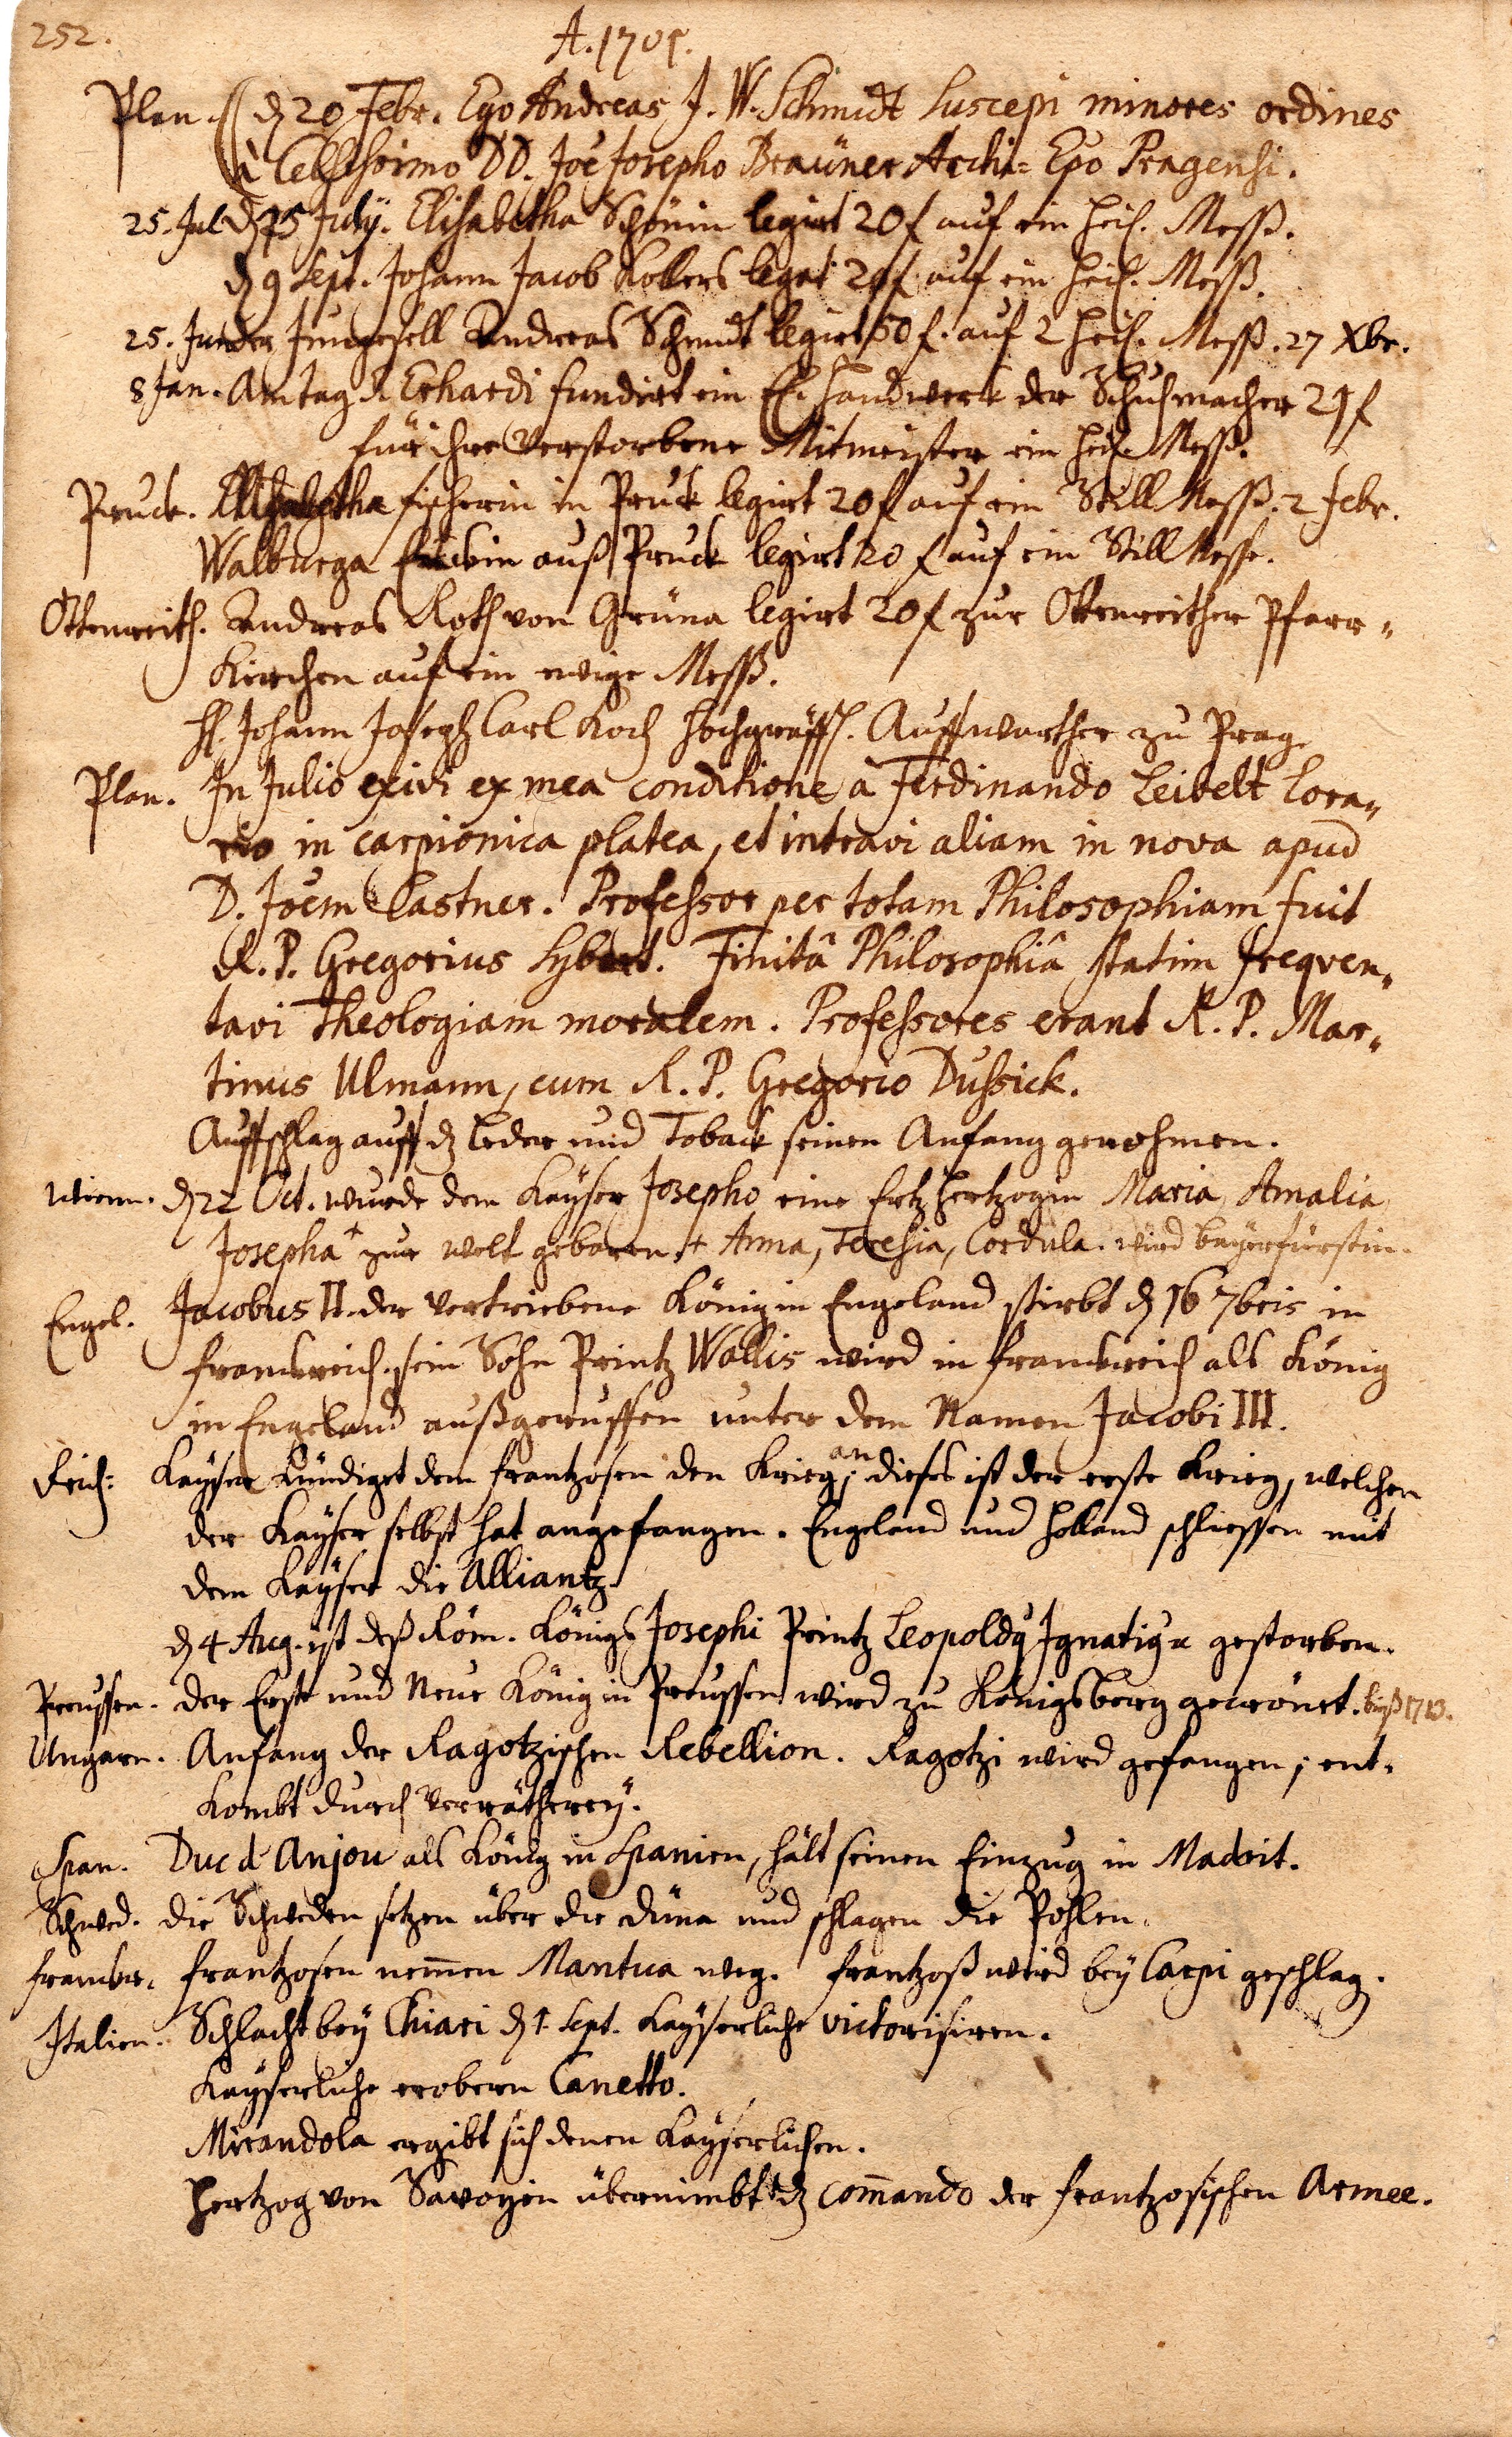 252.
A. 1701.
Plan. d 20 Febr. Ego Andreas J. W. Schmidt suscepi minores ordines
à Celsissimo DD. Joe Josepho Breüner Archi= Epo Pragensi.
25. Jul. d 25 July. Elisabetha Schönin legirt 20 f auf ein heil. Meß.
d 9 Sept. Johann Jacob Kollers legat 20 f auf ein heil. Meß.
25. Jun. der Junggesell Andreas Schmidt legirt 50 f. auf 2 heil. Meß. 27 Xbr.
8 Jan. Am tag S. Erhardi fundirt ein E. Handwerk der Schuhmacher 24 f
für ihre verstorbene Mitmeister ein heil. Meß.
Pruck. Elisabetha fischerin in Pruck legirt 20 f auf ein Still Meß. 2 Febr.
Walburga auß Pruck legirt 20 f auf ein Still Messe.
Ottenreith. Andreas Roth von Grüna legirt 20 f zur Ottenreither Pfarr=
Kirchen auf ein ewige Meß.
H. Johann Joseph Carl Koch Hochgräffl. Auffwarther zu Prag.
Plan. In Julio exivi ex mea conditione à Ferdinando Leibelt Lora=
rio in carpionica platea, et intravi aliam in nova apud
D. Joem Castner. Professor per totam Philosophiam fuit
R. P. Gregorius Sybert. Finitâ Philosophiâ statim freqven=
tavi Theologiam moralem. Professores erant R. P. Mar=
tinus Ulmann, cum R. P. Gregorio Dussick.
Auffschlag auff d Leder und Toback seinen Anfang genohmen.
Wienn. d 22 Oct. wurde dem Kaÿser Josepho eine Ertzhertzogin Maria Amalia
Josepha + zur welt gebohren. + Anna, Teresia, Cordula. wird baÿerfürstin.
Engel. Jacobus II. der vertriebene König in Engeland stirbt d 16 7bris in
franckreich. sein Sohn Printz Wallis wird in franckreich als König
in Engeland außgeruffen unter dem Namen Jacobi III.
Reich: Kaÿser kündiget dem frantzosen den Krieg an; dieses ist der erste Krieg, welchen
der Kaÿser selbst hat angefangen. Engeland und Holland schliessen mit
dem Kaÿser die Alliantz.
d 4 Aug. ist deß Röm. Königs Josephi Printz Leopoldq Ignatiq gestorben.
Preussen. der Erste und Neue König in Preussen wird zu Königsberg gecrönet. biß 1713.
Ungarn. Anfang der Ragotzischen Rebellion. Ragotzi wird gefangen; ent=
kombt durch verrätherey.
Span. Duc d Anjou als König in Spanien, hält seinen Einzug in Madrit.
Schwed. die Schweden setzen über die Düna und schlagen die Pohlen.
franckr. frantzosen nemmen Mantua weg. frantzoß wird bey Carpi geschlag.
Italien. Schlacht bey Chiari d 1. Sept. Kaÿserliche victorisiren.
Kaÿserliche erobern Canetto.
Mirandola ergibt sich denen Kaÿserlichen.
Hertzog von Savoyen übernimbt d commando der frantzosischen Armee.